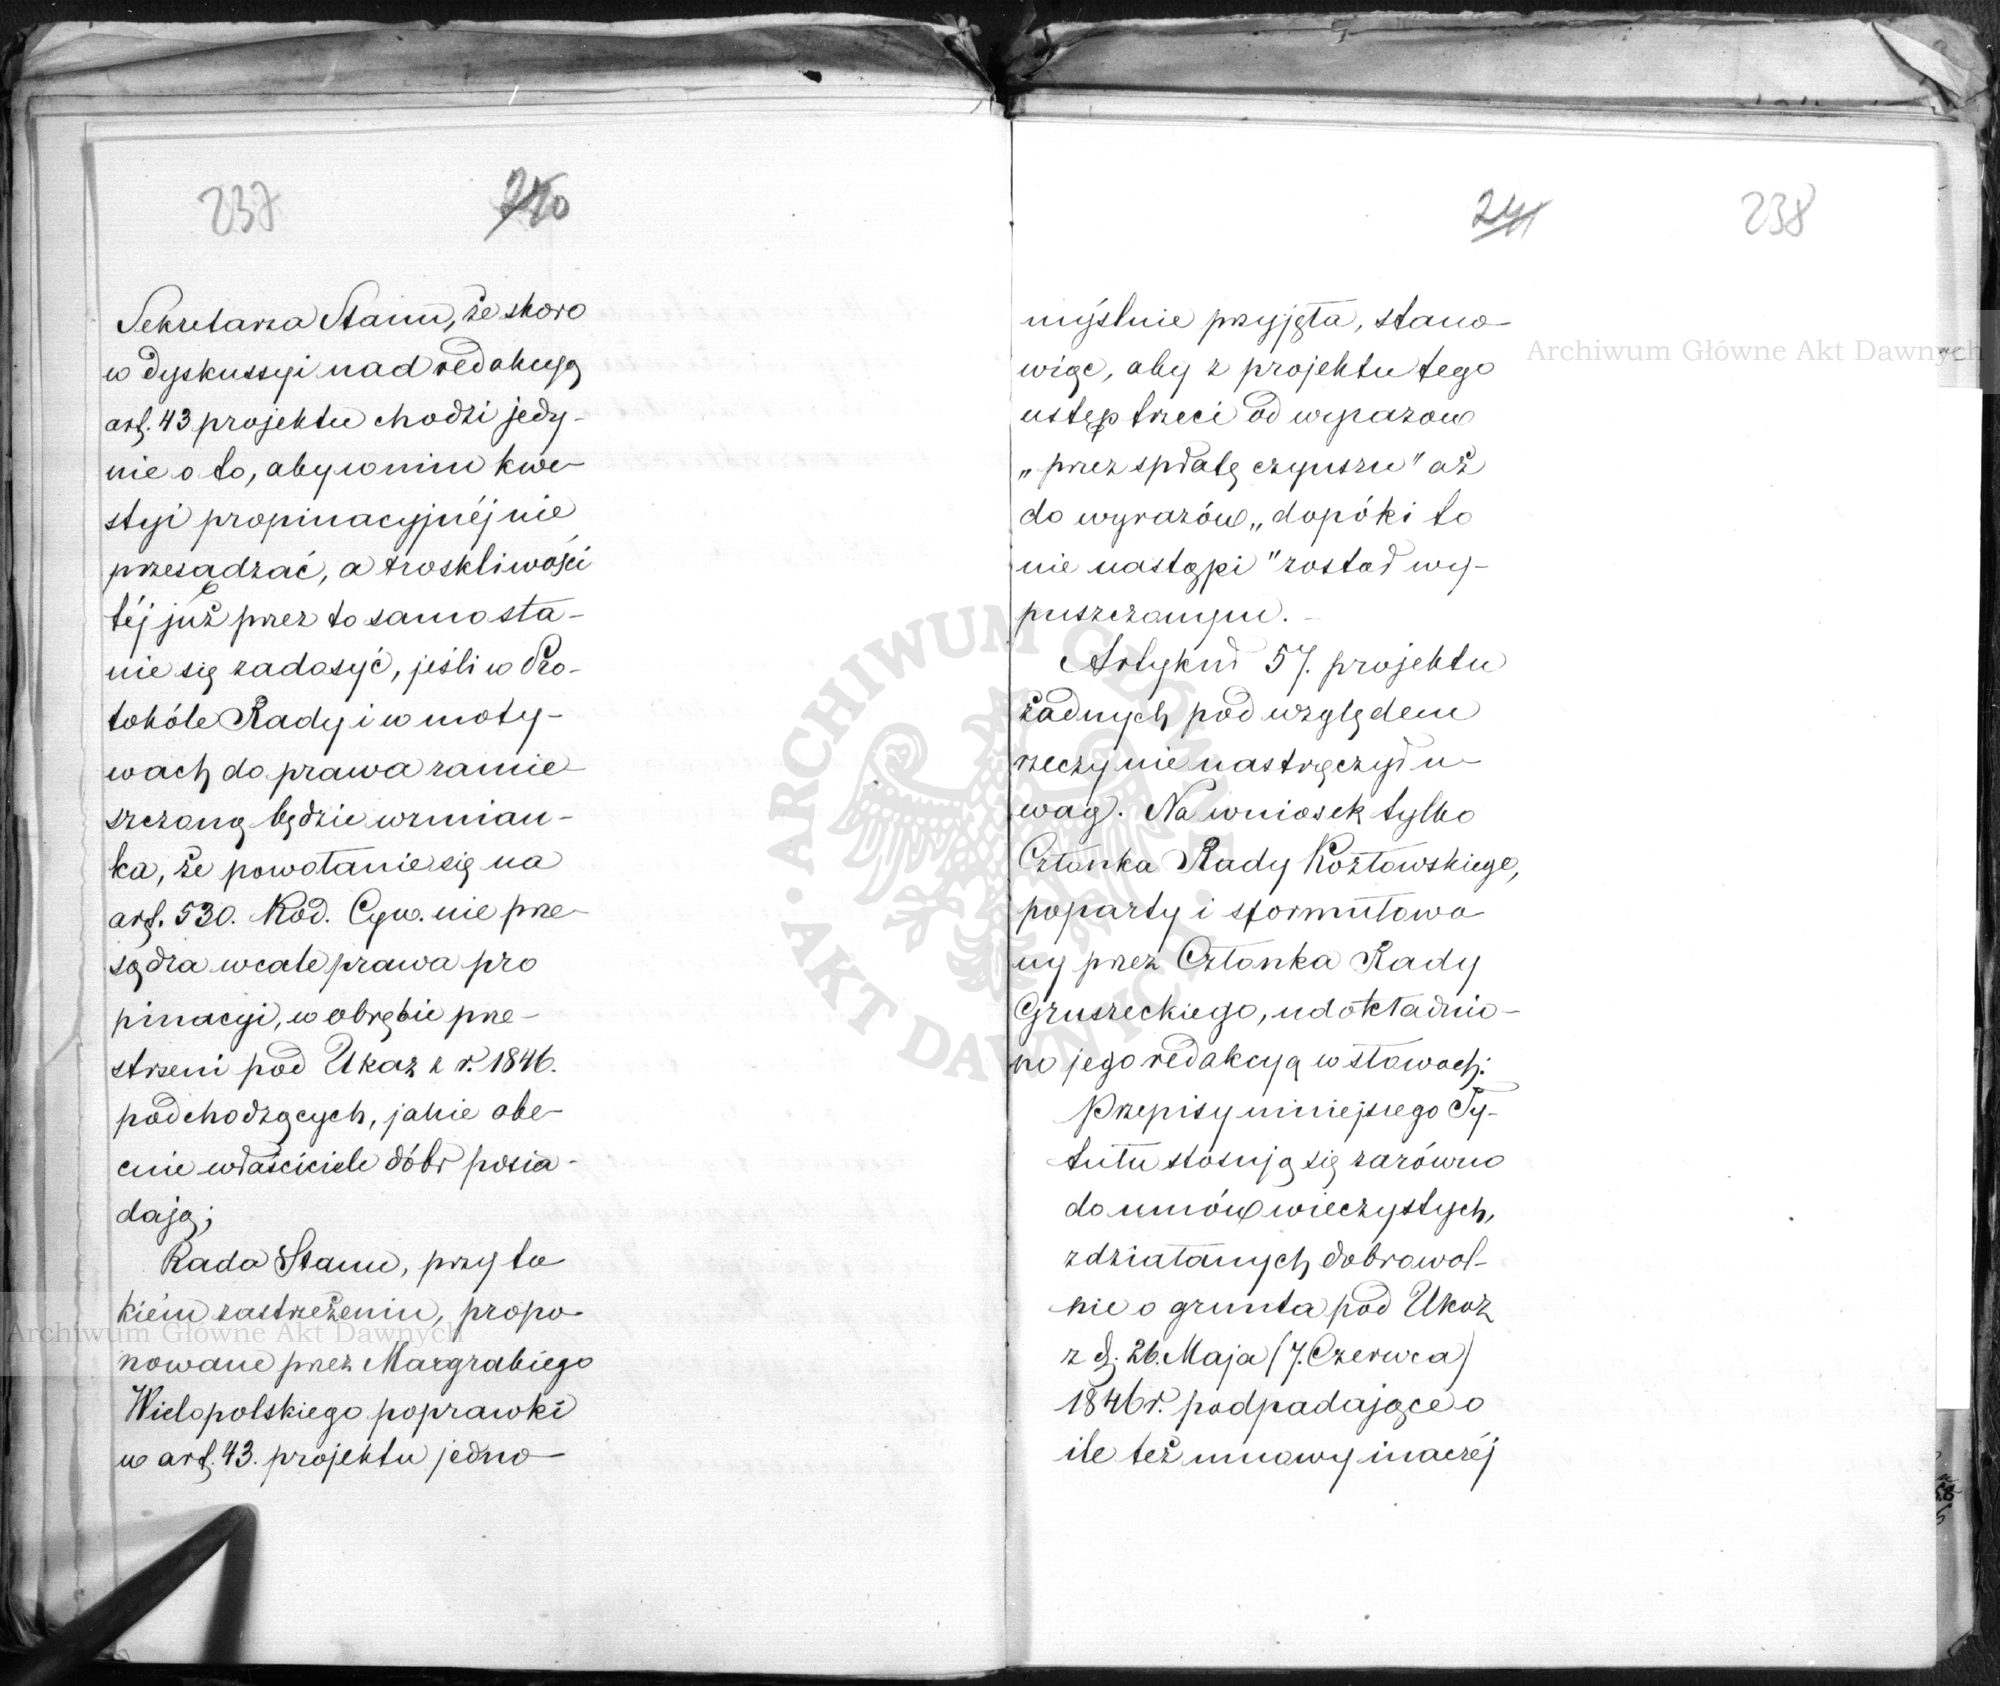 237
240
Sekretarza Stanu, że skoro
w dyskussyi nad redakcyą
art. 43 projektu chodzi jedy-
nie o to, aby w nim kwe-
styi propinacyjnéj nie
przesądzać, a troskliwości
téj już przez to samo sta-
nie się zadosyć, jeśli w Pro-
tokóle Rady i w moty-
wach do prawa zamie-
szczoną będzie wzmian-
ka, że powołanie się na
art. 530. Kod. Cyw. nie prze-
sądza wcale prawa pro
pinacyi, w obrębie prze-
strzeni pod Ukaz z r. 1846.
podchodzących, jakie obe-
cnie właściciele dóbr posia-
dają;
Rada Stanu, przy ta
kiém zastrzeżeniu, propo-
nowane przez Margrabiego
Wielopolskiego poprawki
w art. 43. projektu jedno-
241
238
myślnie przyjęła, stano-
wiąc, aby z projektu tego
ustęp trzeci od wyrazów
„przez spłatę czynszu" aż
do wyrazów „dopóki to
nie nastąpi" został wy-
puszczonym.
Artykuł 57. projektu
żadnych pod względem
rzeczy nie nastręczył u-
wag. Na wniosek tylko
Członka Rady Kozłowskiego,
poparty i sformułowa
ny przez Członka Rady
Gruszeckiego, udokładnio-
no jego redakcyą w słowach:
Przepisy niniejszego Ty-
tułu stosują się zarówno
do umów wieczystych,
zdziałanych dobrowol-
nie o grunta pod Ukaz
z d. 26. Maja (7. Czerwca)
1846 r. podpadające o
ile też umowy inaczéj
Archiwum Główne Akt Dawnych
Archiwum Główne Akt Dawnych
ARCHIWUM GŁÓWNE
AKT DAWNYCH